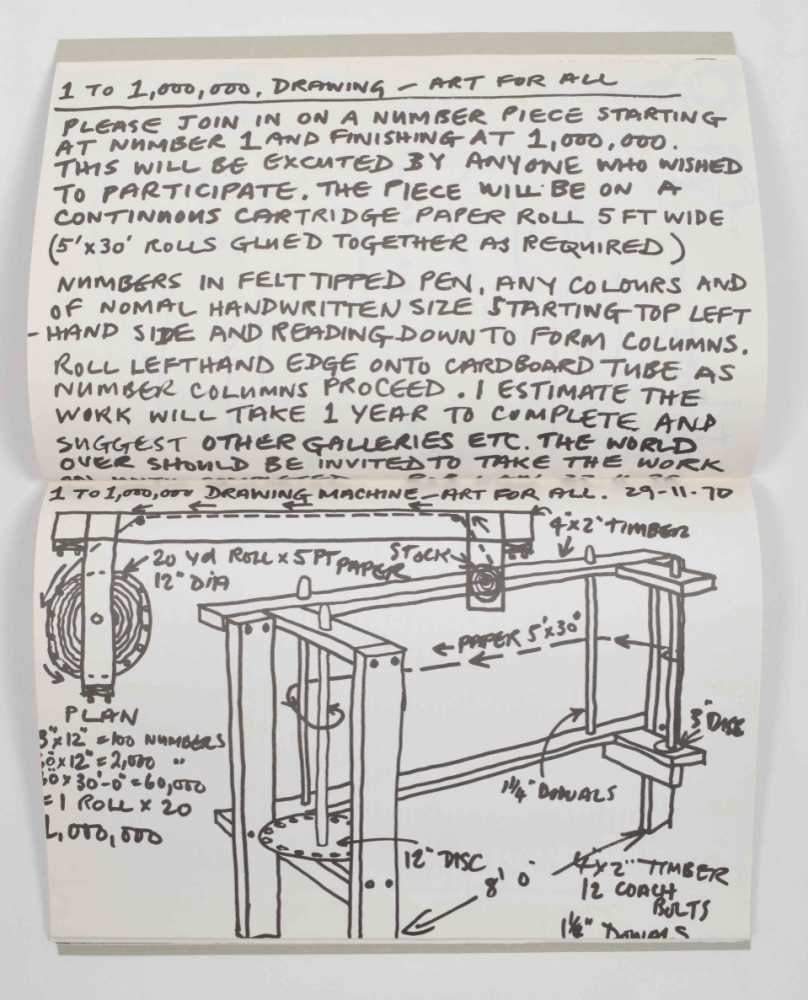 1 TO 1,000,000, DRAWING – ART FOR ALL
PLEASE JOIN IN ON A NUMBER PIECE STARTING
AT NUMBER 1 AND FINISHING AT 1,000,000.
THIS WILL BE EXCUTED BY ANYONE WHO WISHED
TO PARTICIPATE. THE PIECE WILL BE ON A
CONTINUOUS CARTRIDGE PAPER ROLL 5 FT WIDE
(5'x30' ROLLS GLUED TOGETHER AS REQUIRED)
NUMBERS IN FELT TIPPED PEN, ANY COLOURS AND
OF NOMAL HANDWRITTEN SIZE STARTING TOP LEFT
-HAND SIDE AND READING DOWN TO FORM COLUMNS.
ROLL LEFTHAND EDGE ONTO CARDBOARD TUBE AS
NUMBER COLUMNS PROCEED. I ESTIMATE THE
WORK WILL TAKE 1 YEAR TO COMPLETE AND
SUGGEST OTHER GALLERIES ETC. THE WORLD
OVER SHOULD BE INVITED TO TAKE THE WORK
1 TO 1,000,000 DRAWING MACHINE – ART FOR ALL. 29-11-70
4"x2" TIMBER
20 yd ROLL x 5 FT PAPER
12" DIA
STOCK
PAPER 5'x30'
PLAN
3" DISC
3"x12" = 100 NUMBERS
60"x12" = 2,000 "
60"x30'-0" = 60,000
= 1 ROLL x 20
1,000,000
1¼" DOWALS
12" DISC
8' 0"
4"x2" TIMBER
12 COACH
BOLTS
1½" DOWALS